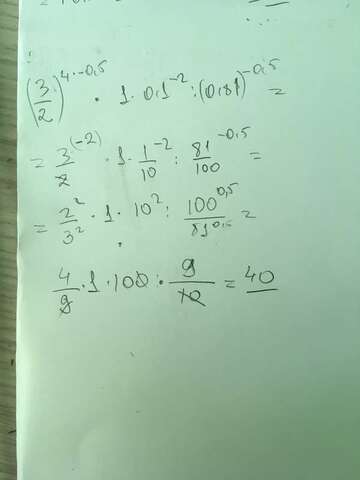 (3/2)^4·-0,5 · 1 · 0,1^-2 : (0,81)^-0,5 =
= 3/2^(-2) · 1 · 1/10^-2 : 81/100^-0,5 =
= 2^2/3^2 · 1 · 10^2 : 100^0,5/81^0,5 =
4/9 · 1 · 100 · 9/10 = 40